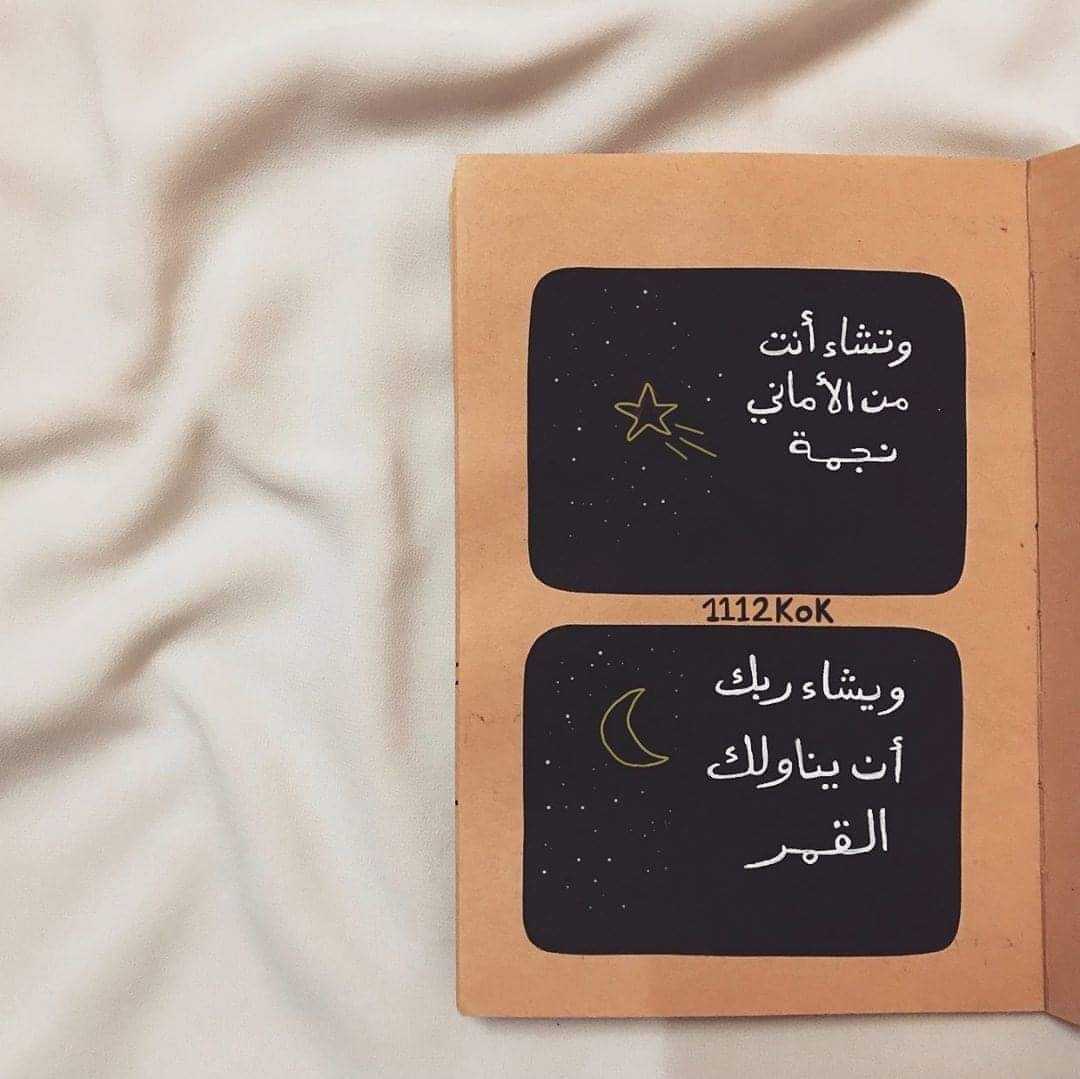 وتشاء أنت
من الأماني
نجمة
1112KoK
ويشاء ربك
أن يناولك
القمر